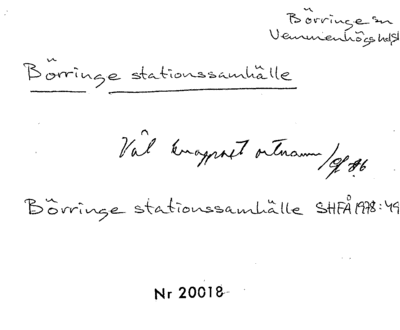 Börringe sn
Vemmenhögs hd
Börringe stationssamhälle
Väl knappast ortnamn/
Börringe stationssamhälle SHFÅ 1978:49
Nr 20018